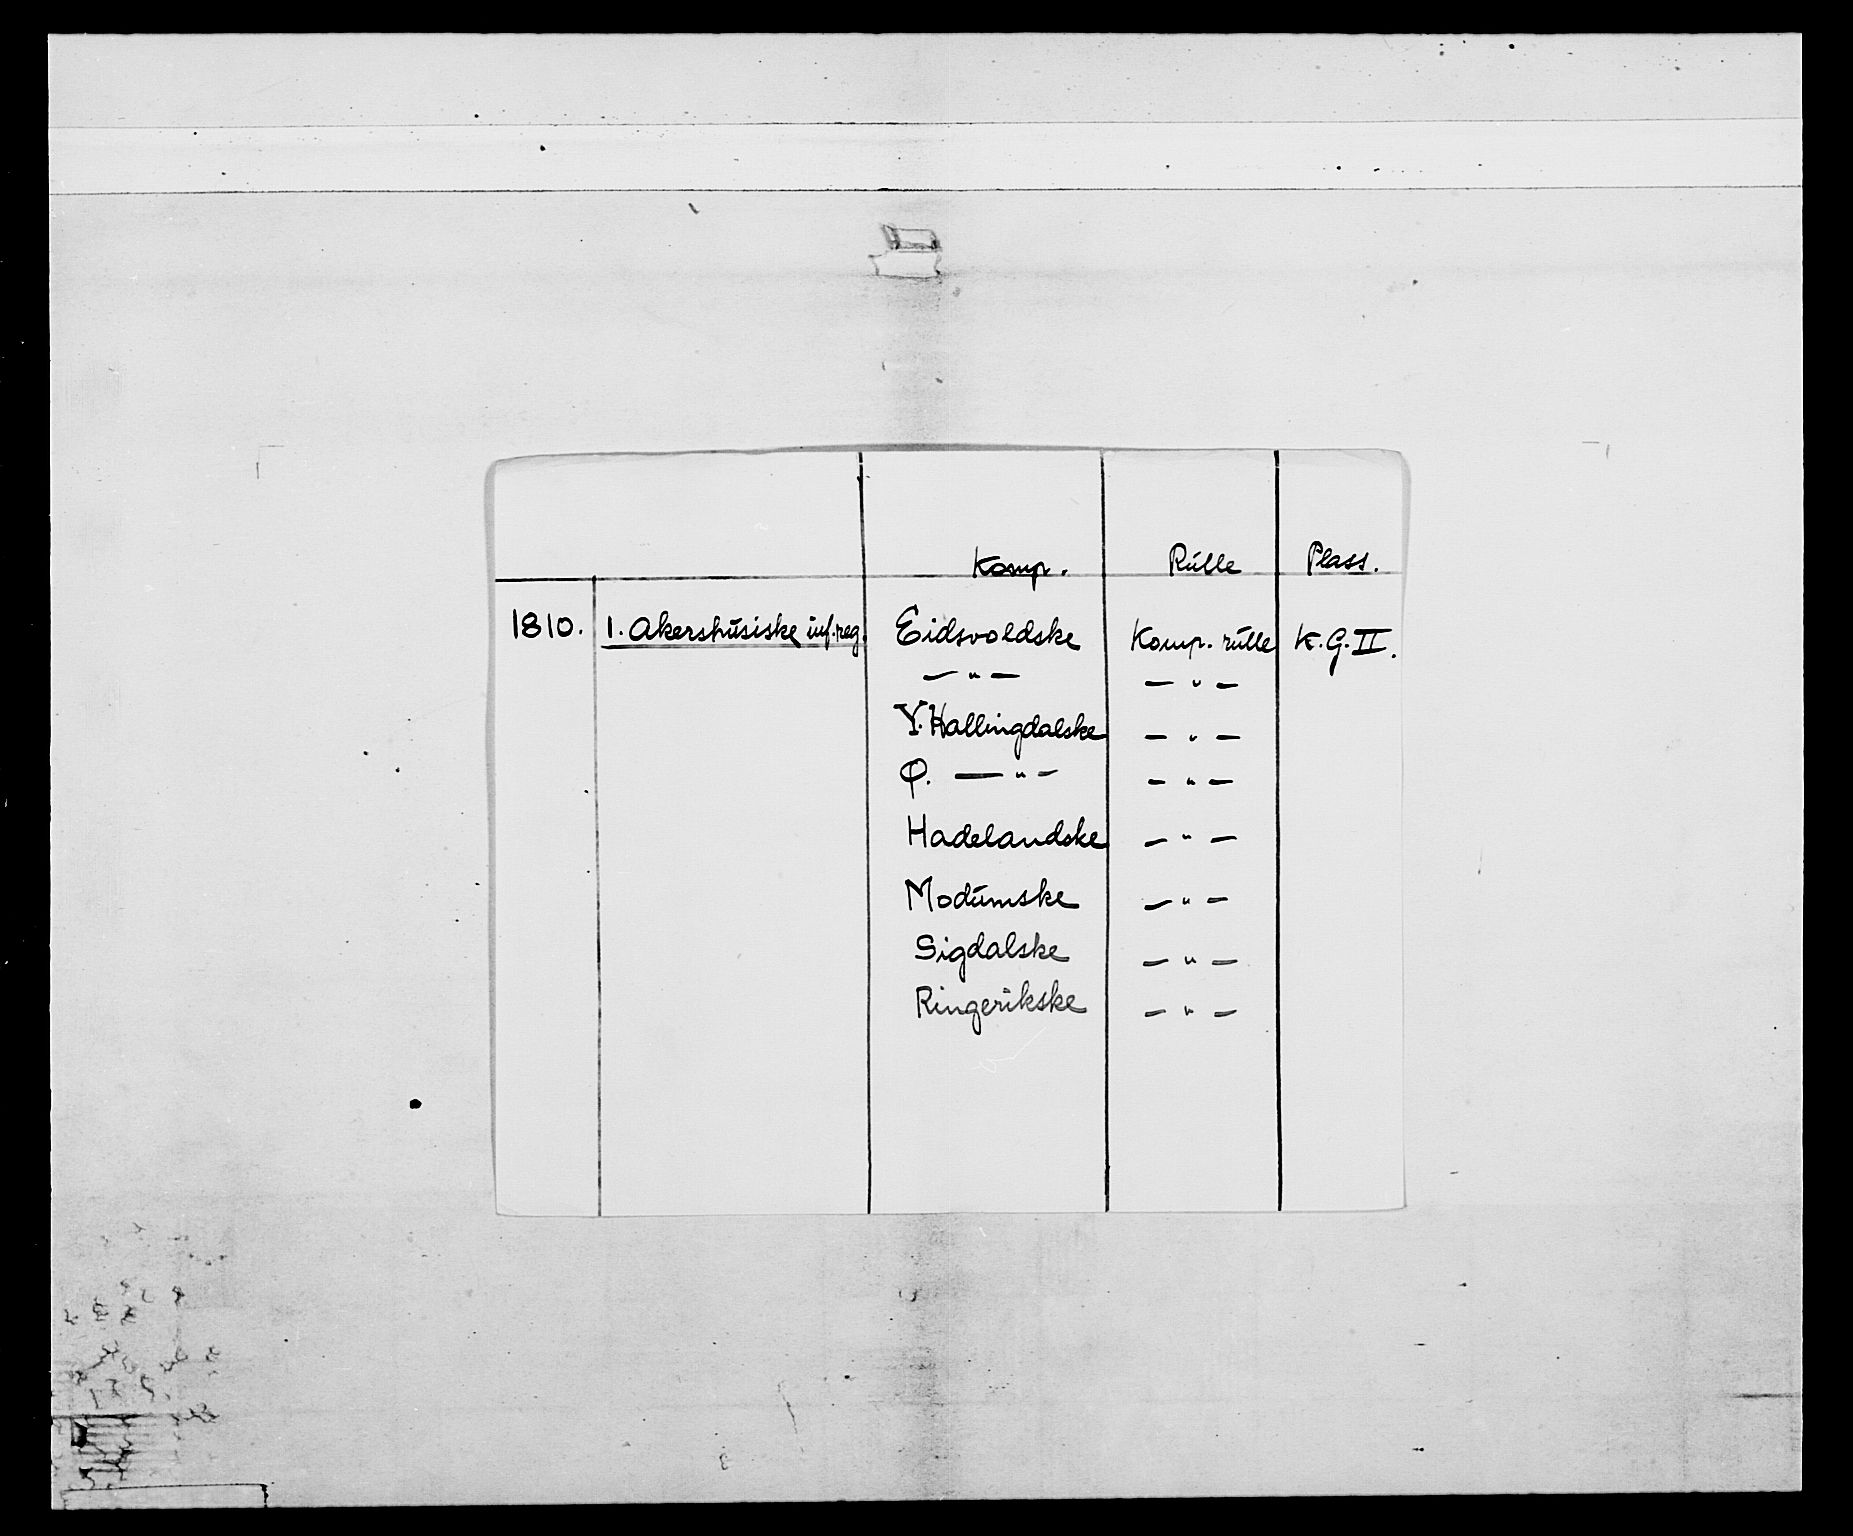 Komp. Rulle Plass.
1810. 1. Akershusiske inf.reg. Eidsvoldske Komp. rulle K.G.II.
— " — — " —
Y. Hallingdalske — " —
Ø. — " — — " —
Hadelandske — " —
Modumske — " —
Sigdalske — " —
Ringerikske — " —